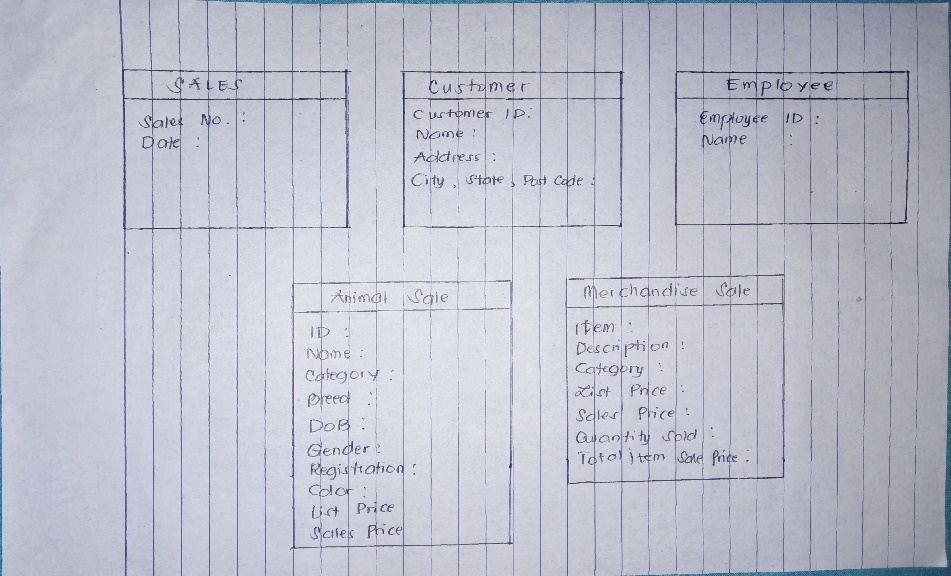 SALES
Sales No. :
Date :
Customer
Customer ID:
Name :
Address :
City, State, Post Code :
Employee
Employee ID :
Name :
Animal Sale
ID :
Name :
Category :
Breed :
DoB :
Gender :
Registration :
Color :
List Price
Sales Price
Merchandise Sale
Item :
Description :
Category :
List Price :
Sales Price :
Quantity Sold :
Total Item Sale Price :